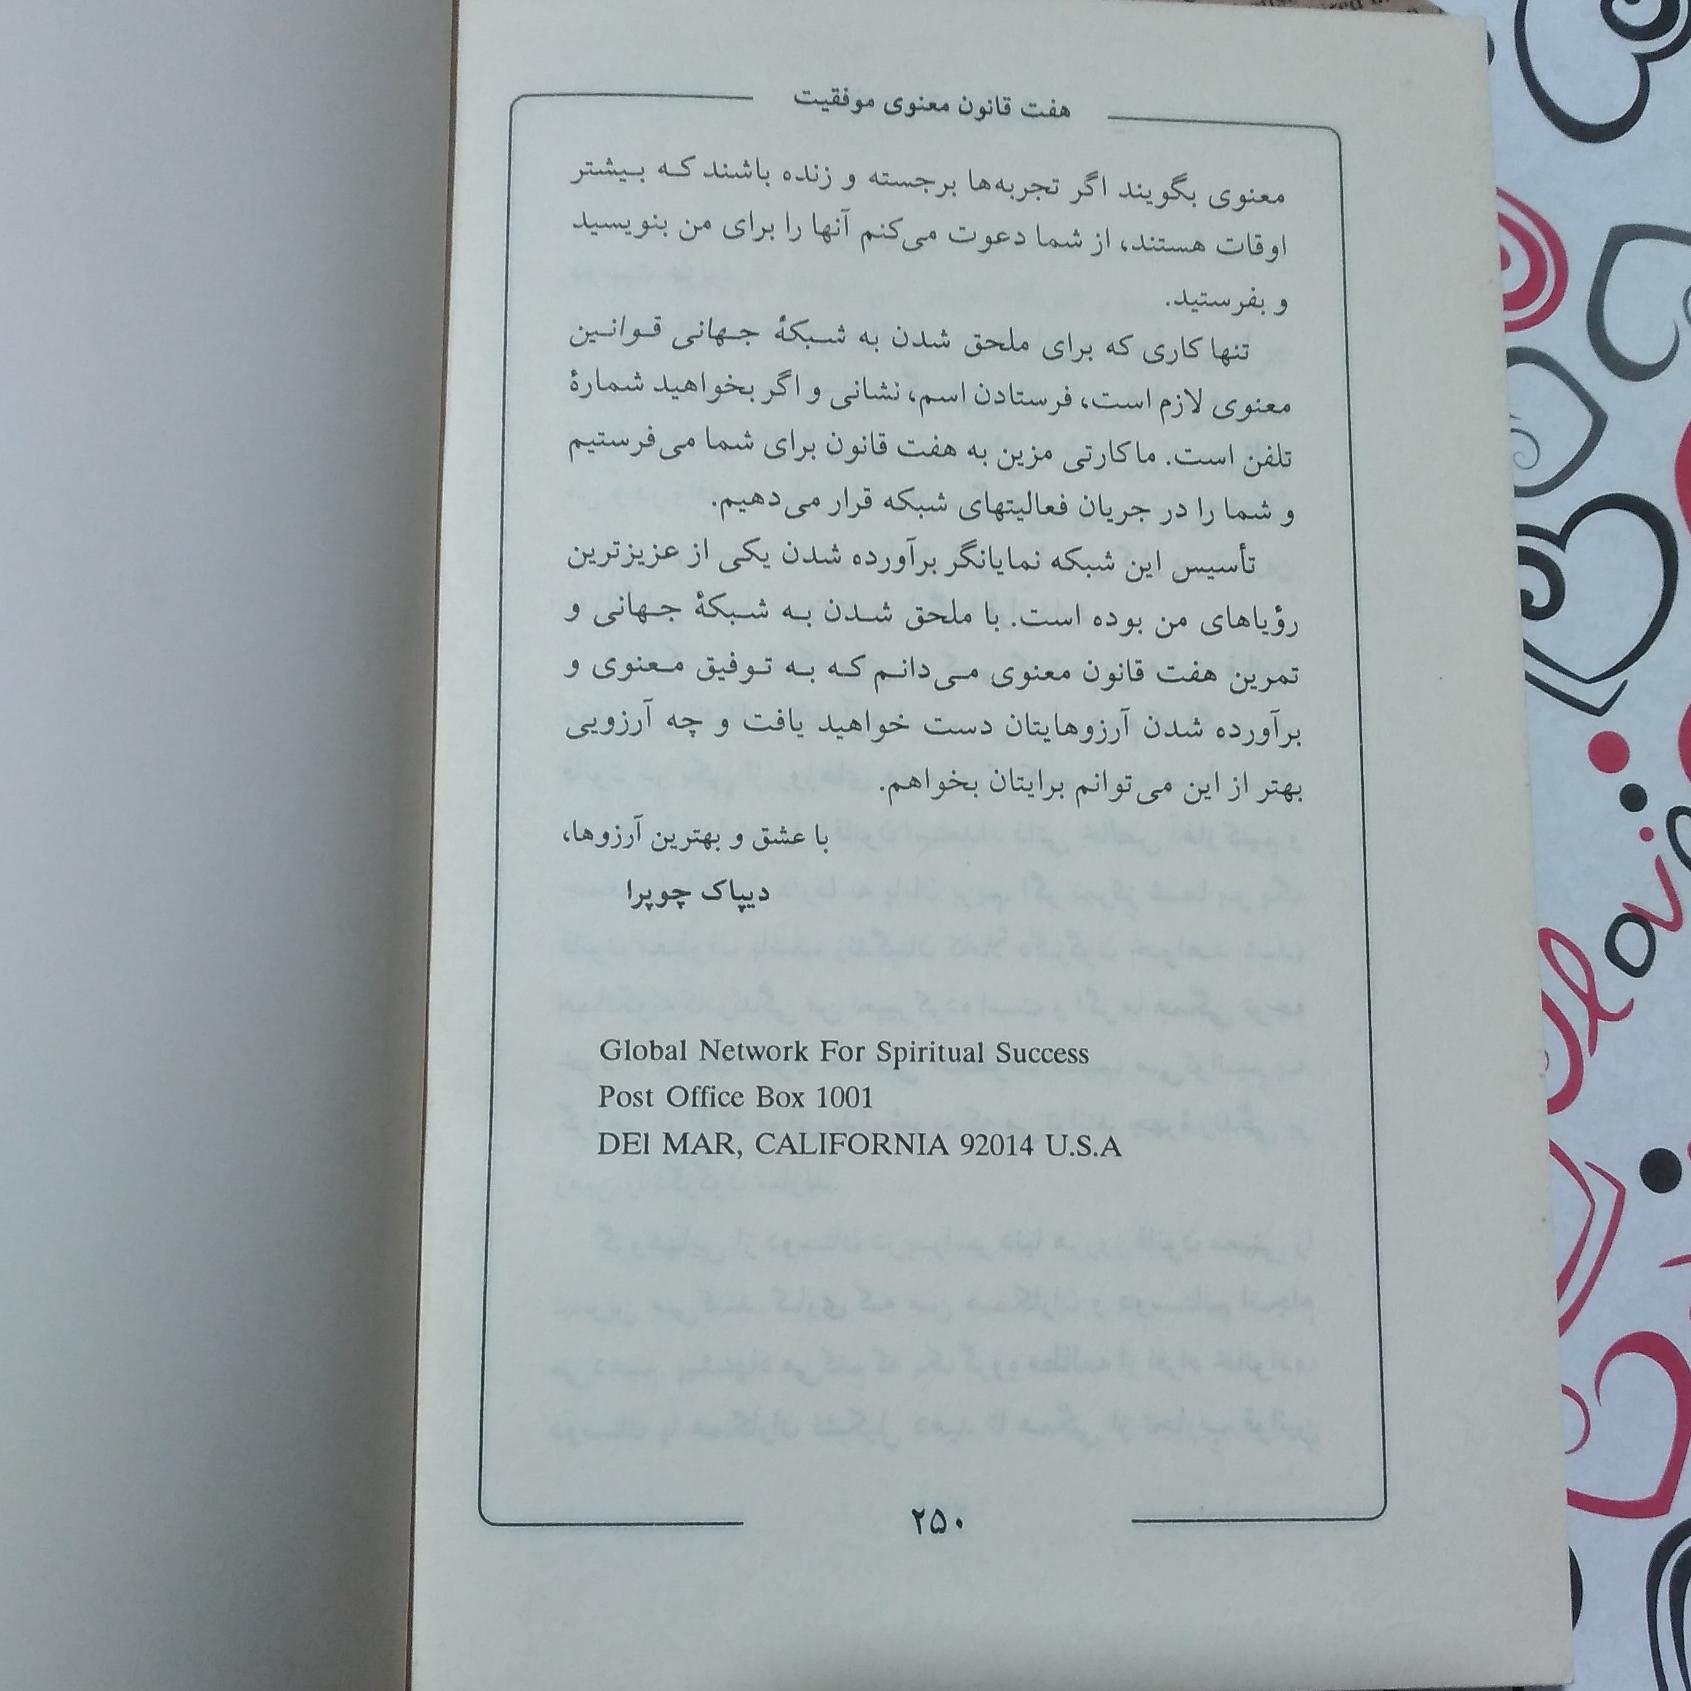 هفت قانون معنوی موفقیت
معنوی بگویند اگر تجربه‌ها برجسته و زنده باشند که بیشتر
اوقات هستند، از شما دعوت می‌کنم آنها را برای من بنویسید
و بفرستید.
تنها کاری که برای ملحق شدن به شبکهٔ جهانی قوانین
معنوی لازم است، فرستادن اسم، نشانی و اگر بخواهید شمارهٔ
تلفن است. ما کارتی مزین به هفت قانون برای شما می‌فرستیم
و شما را در جریان فعالیتهای شبکه قرار می‌دهیم.
تأسیس این شبکه نمایانگر برآورده شدن یکی از عزیزترین
رؤیاهای من بوده است. با ملحق شدن به شبکهٔ جهانی و
تمرین هفت قانون معنوی می‌دانم که به توفیق معنوی و
برآورده شدن آرزوهایتان دست خواهید یافت و چه آرزویی
بهتر از این می‌توانم برایتان بخواهم.
با عشق و بهترین آرزوها،
دیپاک چوپرا
Global Network For Spiritual Success
Post Office Box 1001
DEl MAR, CALIFORNIA 92014 U.S.A
۲۵۰